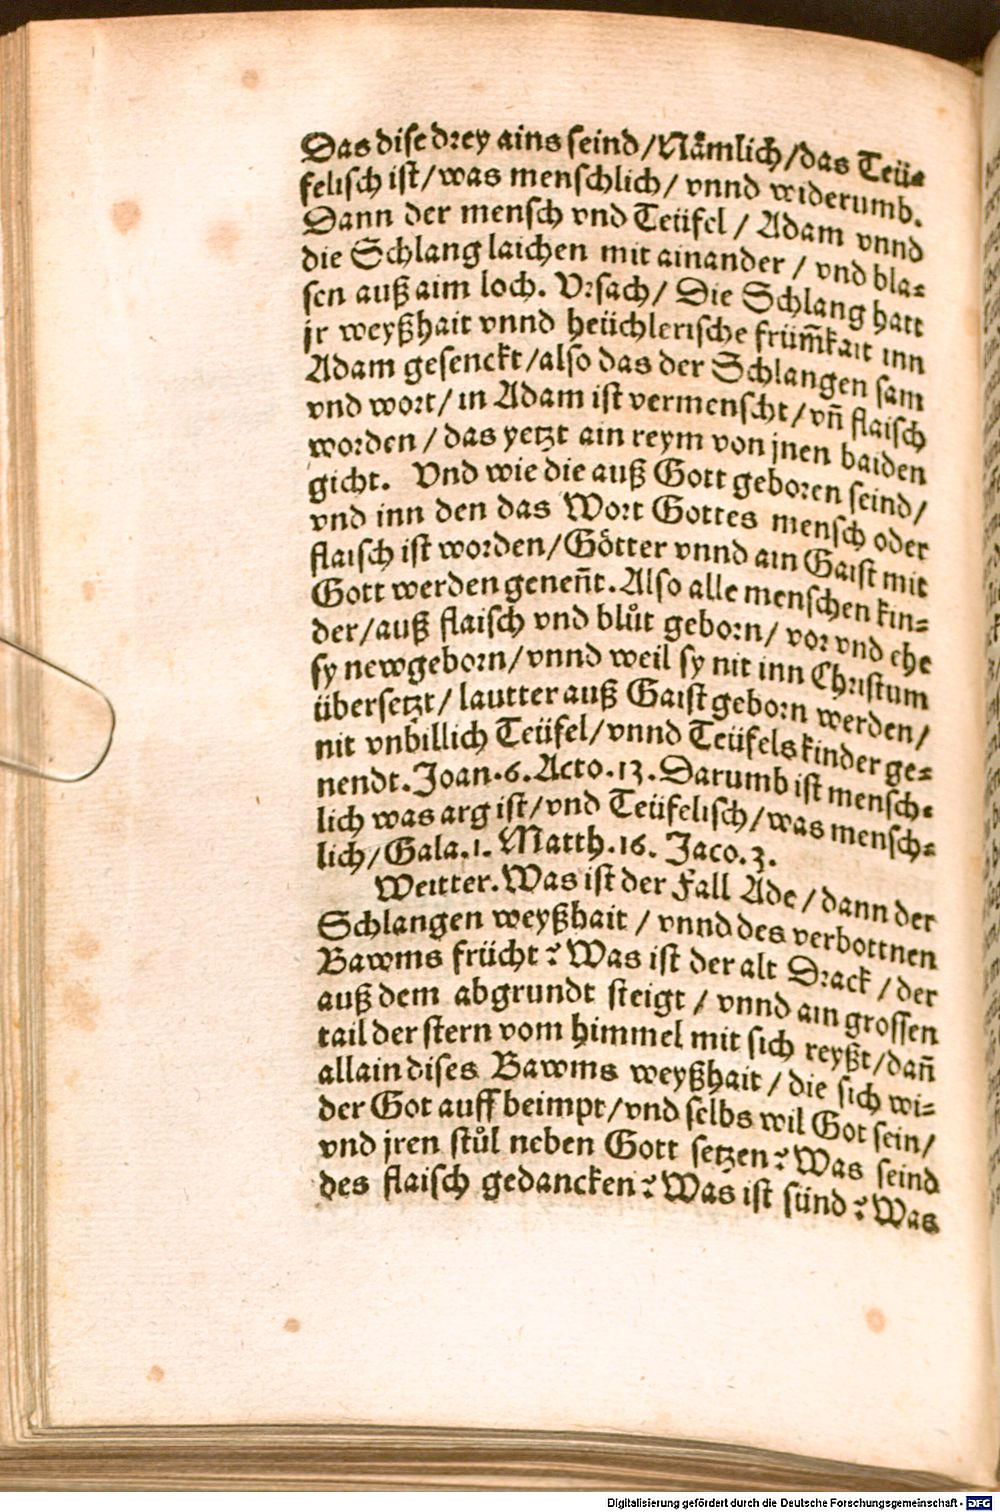 Das dise drey ains seind/Nämlich/das Teü-
felisch ist/was menschlich/ vnnd widerumb.
Dann der mensch vnd Teüfel / Adam vnnd
die Schlang laichen mit ainander / vnd bla-
sen auß aim loch. Vrsach/ Die Schlang hatt
jr weyßhait vnnd heüchlerische früm̃kait inn
Adam gesenckt/also das der Schlangen sam
vnd wort/ in Adam ist vermenscht/vñ flaisch
worden / das yetzt ain reym von jnen baiden
gicht. Vnd wie die auß Gott geboren seind/
vnd inn den das Wort Gottes mensch oder
flaisch ist worden/Götter vnnd ain Gaist mit
Gott werden geneñt. Also alle menschen kin-
der/auß flaisch vnd blůt geborn/ vor vnd ehe
sy newgeborn/vnnd weil sy nit inn Christum
übersetzt/ lautter auß Gaist geborn werden/
nit vnbillich Teüfel/vnnd Teüfels kinder ge-
nendt. Joan.6. Acto.13. Darumb ist mensch-
lich was arg ist/vnd Teüfelisch/was mensch-
lich/Gala.1. Matth.16. Jaco.3.
Weitter. Was ist der Fall Ade / dann der
Schlangen weyßhait / vnnd des verbottnen
Bawms frücht? Was ist der alt Drack / der
auß dem abgrundt steigt / vnnd ain grossen
tail der stern vom himmel mit sich reyßt/dañ
allain dises Bawms weyßhait / die sich wi-
der Got auff beimpt/vnd selbs wil Got sein/
vnd jren stůl neben Gott setzen? Was seind
des flaisch gedancken? Was ist sünd? Was
Digitalisierung gefördert durch die Deutsche Forschungsgemeinschaft - DFG